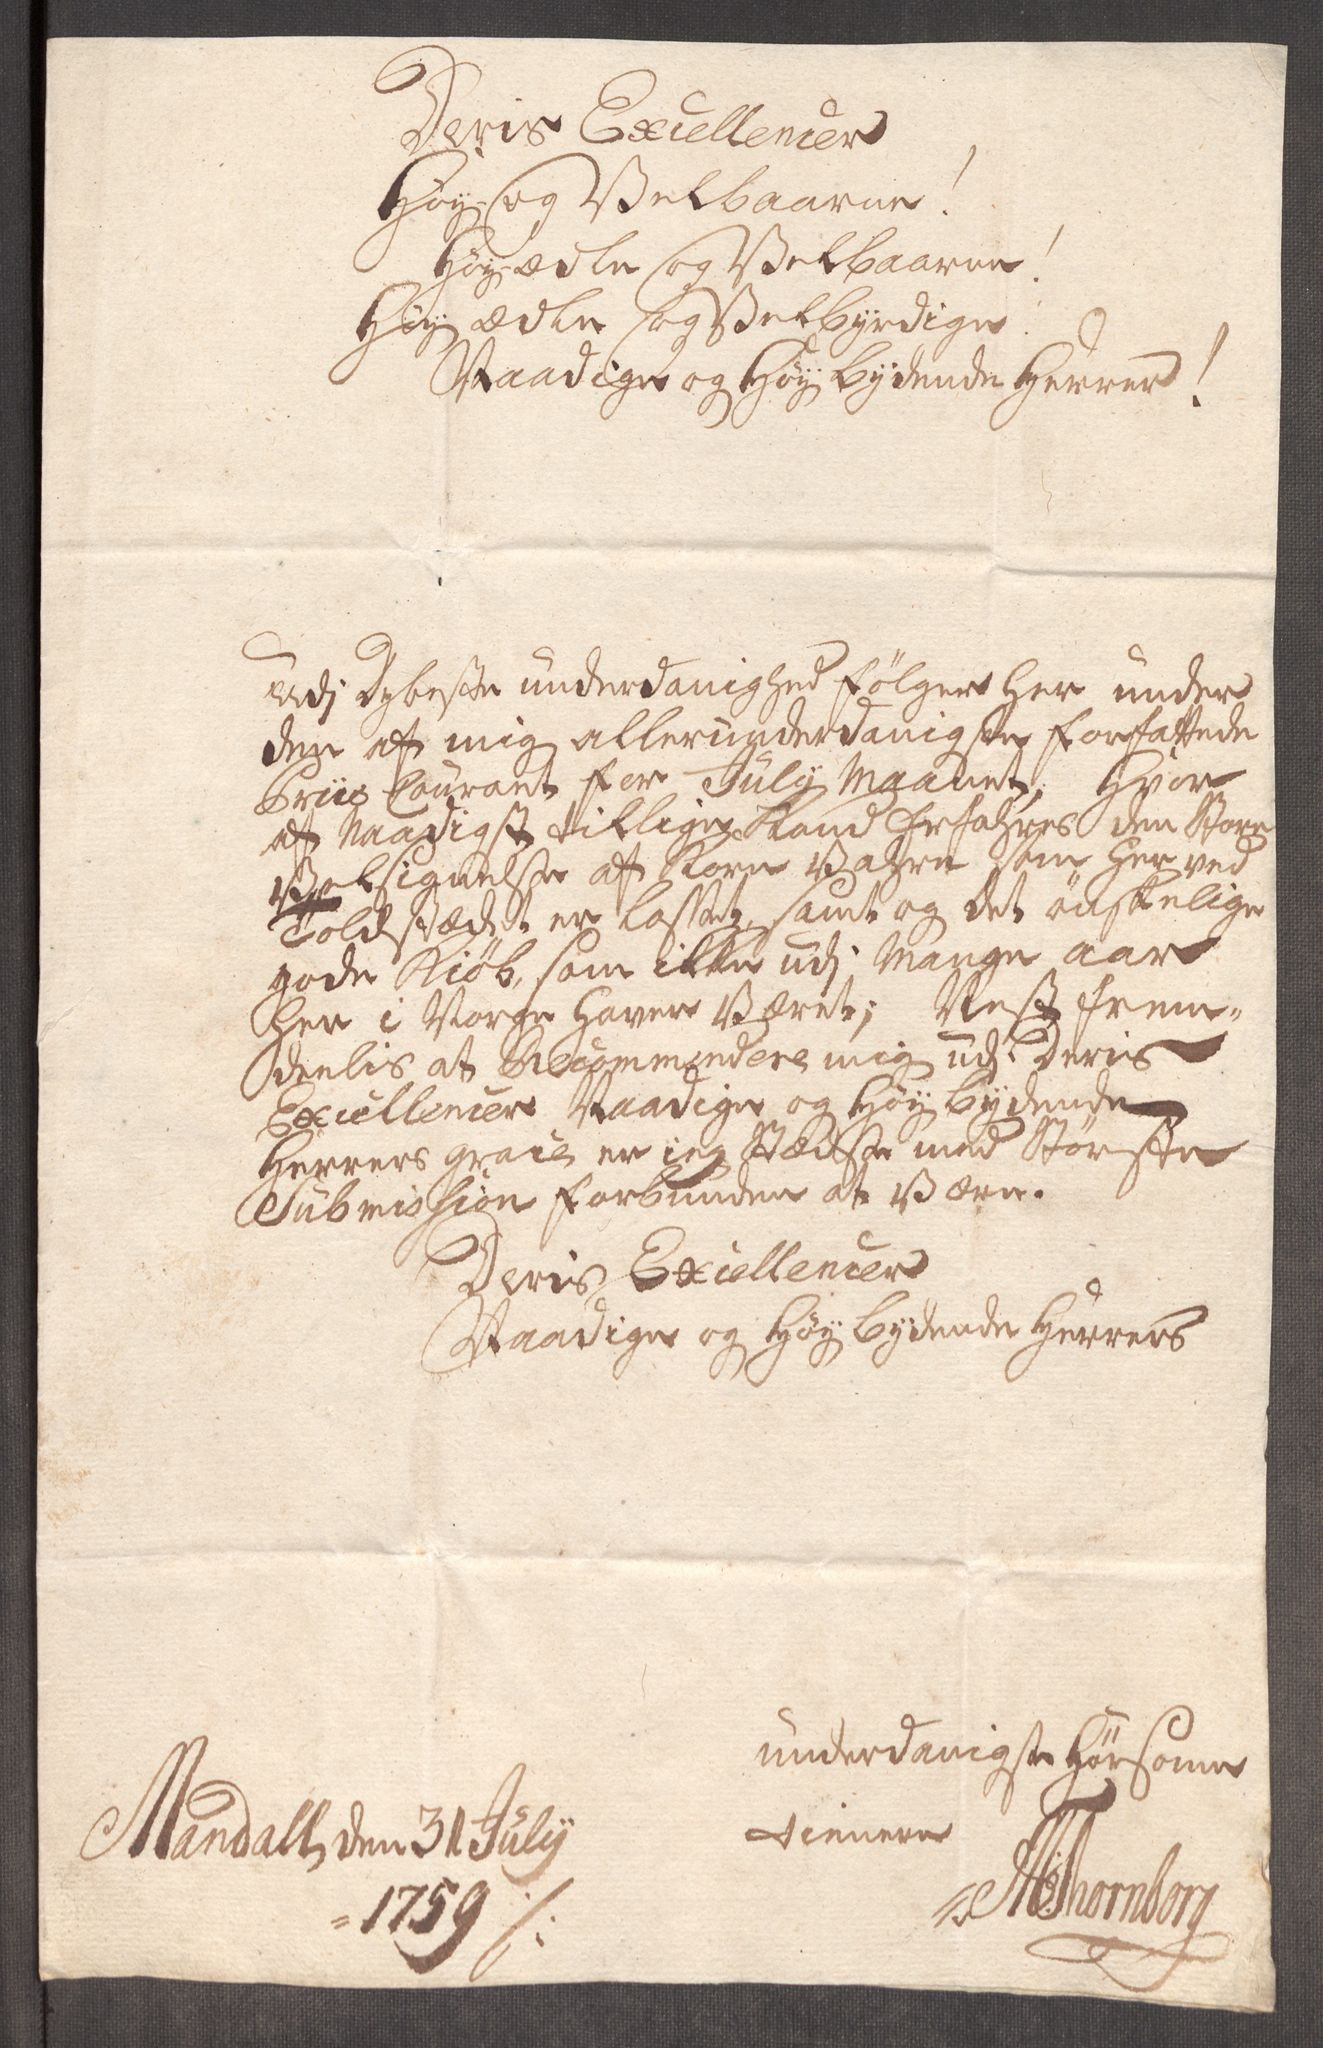 Deris Excellencer
Høy- og Velbaarne!
Høy-ædle og Velbaarne!
Høy ædle og Velbyrdige
Naadige og Høy bydende Herrer!
Udj Dybeste underdanighed følger her under
den af mig allerunderdanigste forfattede
Priis Courant for July Maanet, hvor
af Naadigst tillige Kand Erfahres den Store
Velsignelse af Korn Vahre som her ved
Toldstædet er losset, samt og det ønskelige
gode Kiøb, som ikke udj Mange aar
her i Norge haver Været; Nest frem-
deelis at Recommendere mig udj Deris
Excellencer Naadige og Høy bydende
Herrers grace er ieg stædse med Største
Submission forbunden at Være.
Deris Excellencer
Naadige og Høy bydende Herrers
underdanigste hørsomme
tienere
Mandall, den 31 July
= 1759 /:
Thornborg